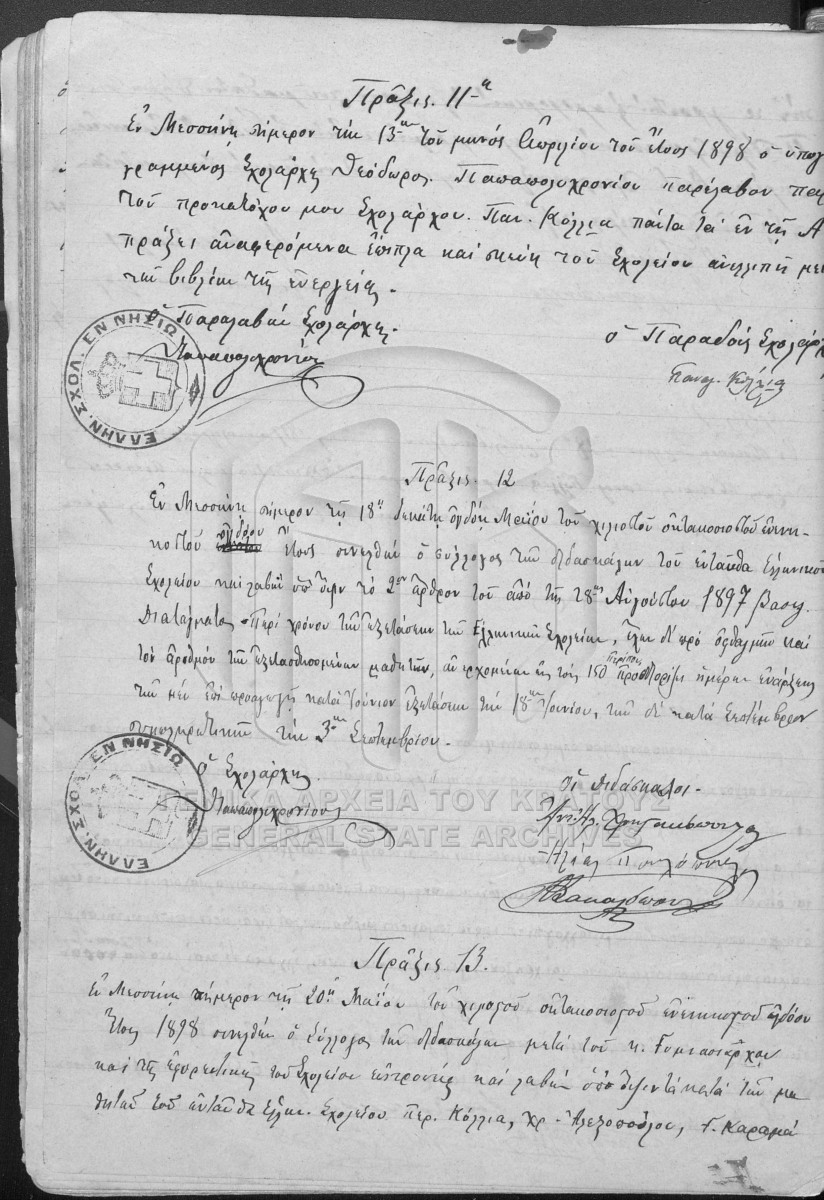 Πρᾶξις. 11-η
Ἐν Μεσσήνῃ σήμερον τὴν 13-ην τοῦ μηνὸς Ἀπριλίου τοῦ ἔτους 1898 ὁ ὑπογε
γραμμένος Σχολάρχης Θεόδωρος. Παπαπολυχρονίου παρέλαβον παρ
τοῦ προκατόχου μου Σχολάρχου. Παν. Κόλλια πάντα τὰ ἐν τῇ Α
πράξει ἀναφερόμενα ἔπιπλα καὶ σκεύη τοῦ Σχολείου ἀνελλιπῆ με
τῶν βιβλίων τῆς ὑπηρεσίας.
ὁ Παραλαβὼν Σχολάρχης.
Παπαπολυχρονίου
ὁ Παραδοὺς Σχολάρχ
Παναγ. Κόλλιας
ΕΛΛΗΝ. ΣΧΟΛ. ΕΝ ΝΗΣΙΩ
Πρᾶξις. 12
Ἐν Μεσσήνῃ σήμερον τῇ 18ῃ δεκάτῃ ὀγδόῃ Μαΐου τοῦ χιλιοστοῦ ὀκτακοσιοστοῦ ἐνενη-
κοστοῦ ὀγδόου ἔτους συνελθὼν ὁ σύλλογος τῶν διδασκάλων τοῦ ἐνταῦθα Ἑλληνικοῦ
Σχολείου καὶ λαβὼν ὑπ' ὄψιν τὸ 2ον ἄρθρον τοῦ ἀπὸ τῆς 28ης Αὐγούστου 1897 βασιλ.
Διατάγματος «Περὶ χρόνου τῶν ἐξετάσεων τῶν Ἑλληνικῶν Σχολείων, ἔχων δὲ πρὸ ὀφθαλμῶν καὶ
τὸν ἀριθμὸν τῶν ἐξετασθησομένων μαθητῶν, ἀνερχομένων εἰς τοὺς 150 περίπου προσδιορίζει ἡμέραν ἐνάρξεως
τῶν μὲν ἐπὶ προαγωγῇ κατὰ Ἰούνιον ἐξετάσεων τὴν 18ην Ἰουνίου, τῶν δὲ κατὰ Σεπτέμβριον
συμπληρωτικῶν τὴν 3ην Σεπτεμβρίου.
ὁ Σχολάρχης
Παπαπολυχρονίου
Οἱ διδάσκαλοι.
ΕΛΛΗΝ. ΣΧΟΛ. ΕΝ ΝΗΣΙΩ
ΓΕΝΙΚΑ ΑΡΧΕΙΑ ΤΟΥ ΚΡΑΤΟΥΣ
GENERAL STATE ARCHIVES
Πρᾶξις 13.
Ἐν Μεσσήνῃ σήμερον τῇ 20ῃ Μαΐου τοῦ χιλιοστοῦ ὀκτακοσιοστοῦ ἐνενηκοστοῦ ὀγδόου
ἔτους 1898 συνελθὼν ὁ Σύλλογος τῶν διδασκάλων μετὰ τοῦ κ. Γυμνασιάρχου
καὶ τῆς ἐφορευτικῆς τοῦ Σχολείου ἐπιτροπῆς καὶ λαβὼν ὑπ' ὄψιν τὰ κατὰ τῶν μα
θητῶν τοῦ ἐνταῦθα Ἑλλην. Σχολείου Περ. Κόλλια, Χρ. Ἀλεξοπούλου, Γ. Καραμά